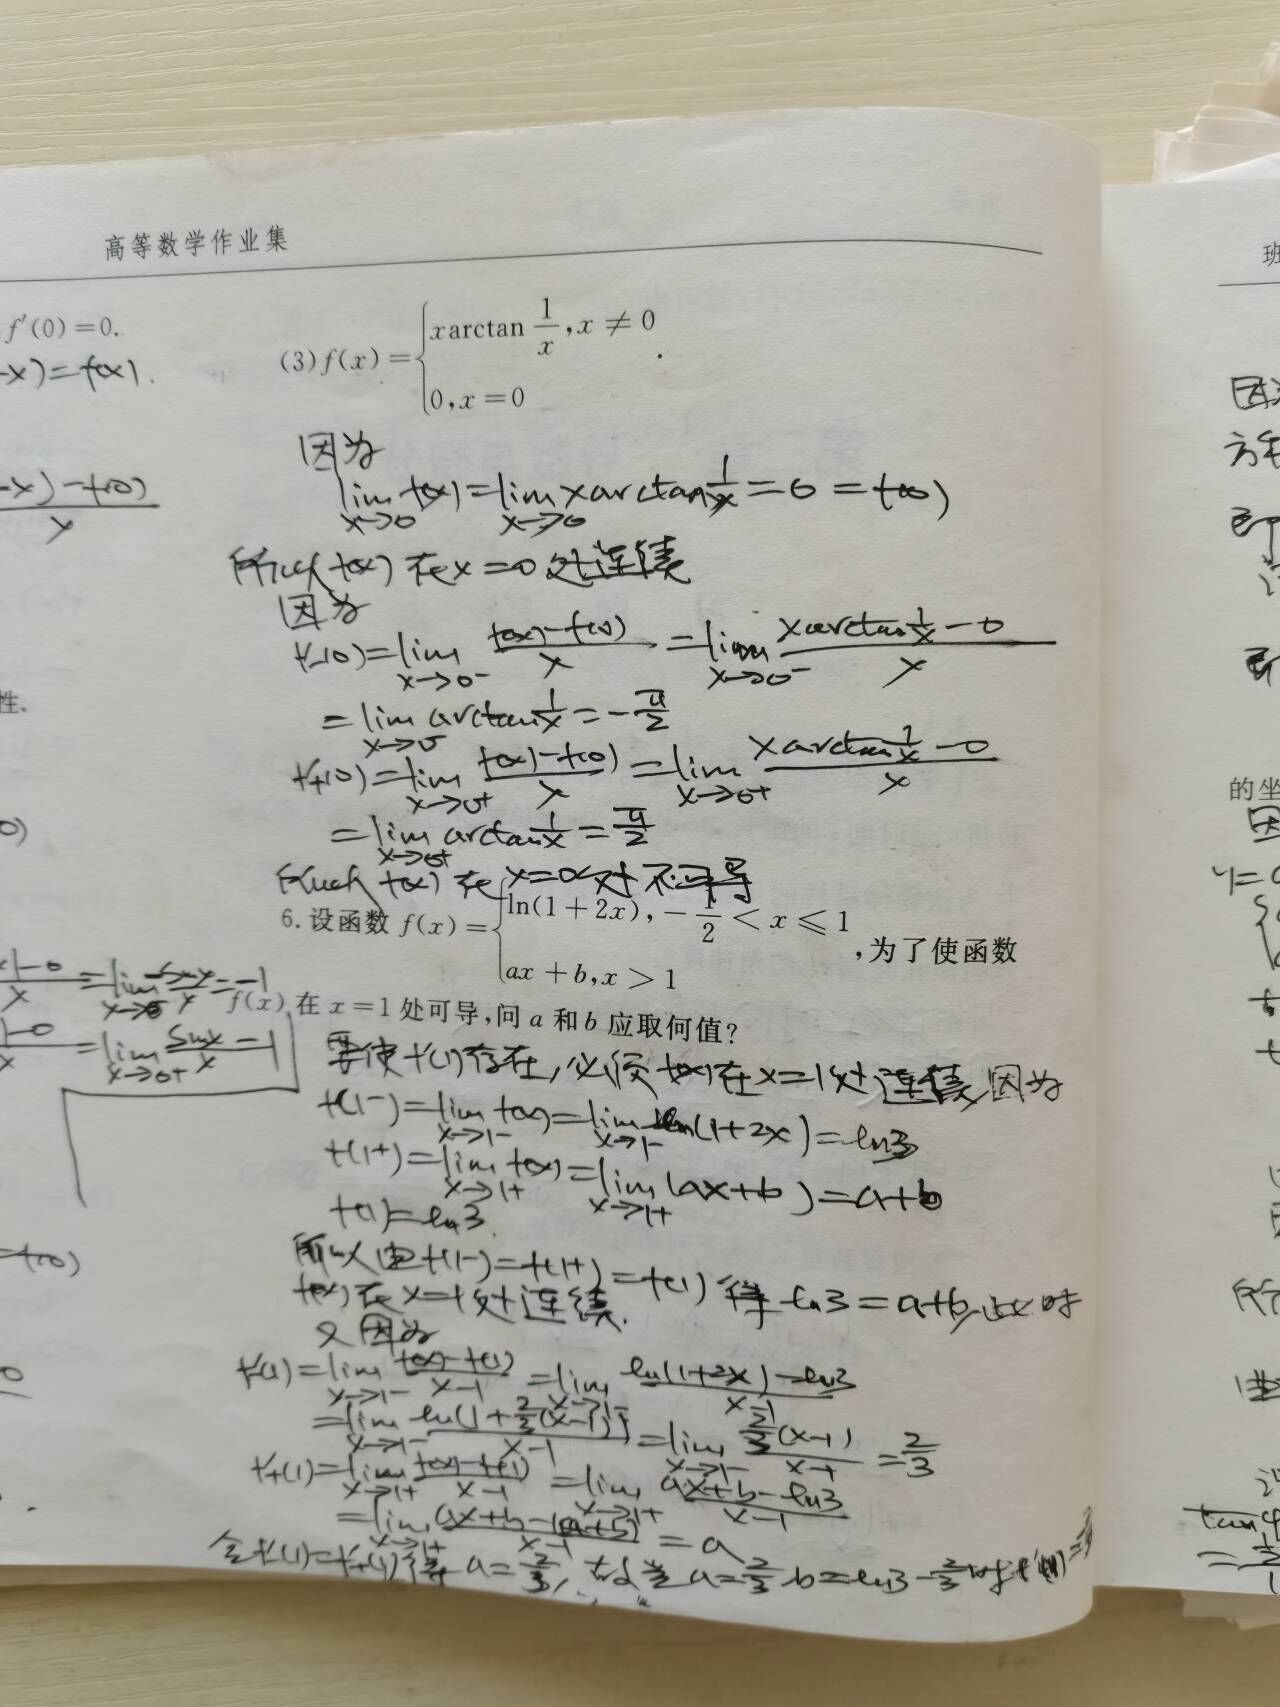 高等数学作业集
f'(0)=0.
-x)=f(x).
-x)-f(0)
x
性.
(3) f(x)={x arctan 1/x, x≠0
0, x=0
因为
lim x→0 f(x)=lim x→0 x arctan 1/x=0=f(0)
所以 f(x) 在x=0处连续
因为
f'-(0)=lim x→0- (f(x)-f(0))/x=lim x→0- (x arctan 1/x -0)/x
=lim x→0- arctan 1/x=-π/2
f'+(0)=lim x→0+ (f(x)-f(0))/x=lim x→0+ (x arctan 1/x -0)/x
=lim x→0+ arctan 1/x=π/2
所以 f(x) 在 x=0处不可导
6. 设函数 f(x)={ln(1+2x), -1/2<x≤1
ax+b, x>1
,为了使函数
f(x) 在 x=1 处可导,问 a 和 b 应取何值?
要使f'(1)存在,必须f(x)在x=1处连续,因为
f(1-)=lim x→1- f(x)=lim x→1- ln(1+2x)=ln3
f(1+)=lim x→1+ f(x)=lim x→1+ (ax+b)=a+b
f(1)=ln3
所以由f(1-)=f(1+)=f(1) 得 ln3=a+b,此时
f(x)在x=1处连续.
又因为
f'-(1)=lim x→1- (f(x)-f(1))/(x-1)=lim x→1- (ln(1+2x)-ln3)/(x-1)
=lim x→1- ln[1+2/3(x-1)]/(x-1)=lim x→1- 2/3(x-1)/(x-1)=2/3
f'+(1)=lim x→1+ (f(x)-f(1))/(x-1)=lim x→1+ (ax+b-ln3)/(x-1)
=lim x→1+ (ax+b-(a+b))/(x-1)=a
令f'-(1)=f'+(1)得 a=2/3,故当a=2/3 b=ln3-2/3时
x→0- sinx/x=-1
=lim x→0+ sinx/x=1
班
的坐